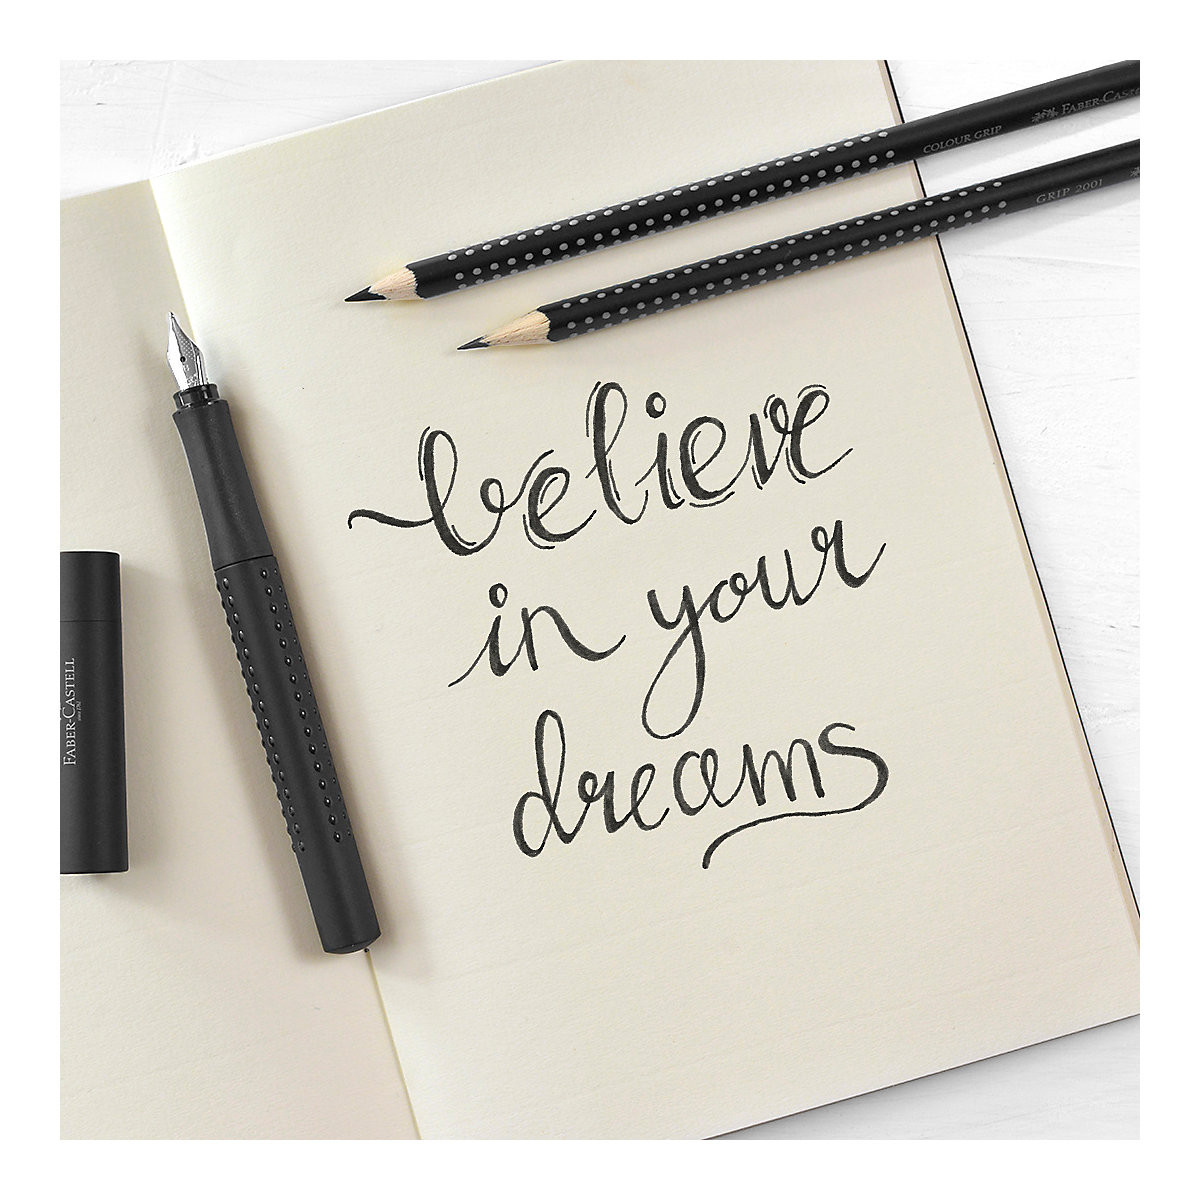 COLOUR GRIP FABER-CASTELL
GRIP 2001
believe
in your
dreams
FABER-CASTELL